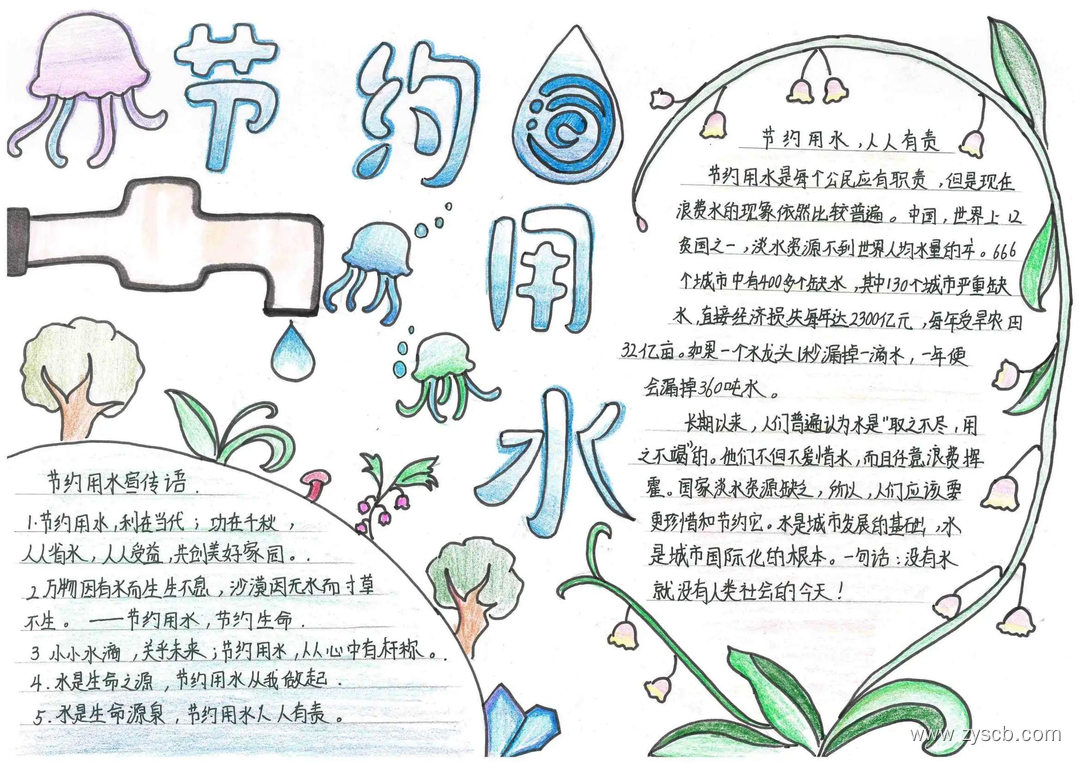 节约用水
节约用水,人人有责
节约用水是每个公民应有职责,但是现在
浪费水的现象依然比较普遍。中国,世界上12
贫国之一,淡水资源不到世界人均水量的。666
个城市中有400多个缺水,其中130个城市严重缺
水,直接经济损失每年达2300亿元,每年受旱农田
32亿亩。如果一个水龙头1秒漏掉一滴水,一年便
会漏掉360吨水。
长期以来,人们普遍认为水是"取之不尽,用
之不竭"的。他们不但不爱惜水,而且任意浪费挥
霍。国家淡水资源缺乏,所以,人们应该要
更珍惜和节约它。水是城市发展的基础,水
是城市国际化的根本。一句话:没有水
就没有人类社会的今天!
节约用水宣传语.
1.节约用水,利在当代;功在千秋,
人人省水,人人受益,共创美好家园。.
2.万物因有水而生生不息,沙漠因无水而寸草
不生。——节约用水,节约生命.
3 小小水滴,关乎未来;节约用水,人人心中有杆称。.
4.水是生命之源,节约用水从我做起.
5.水是生命源泉,节约用水人人有责。
www.zyscb.com